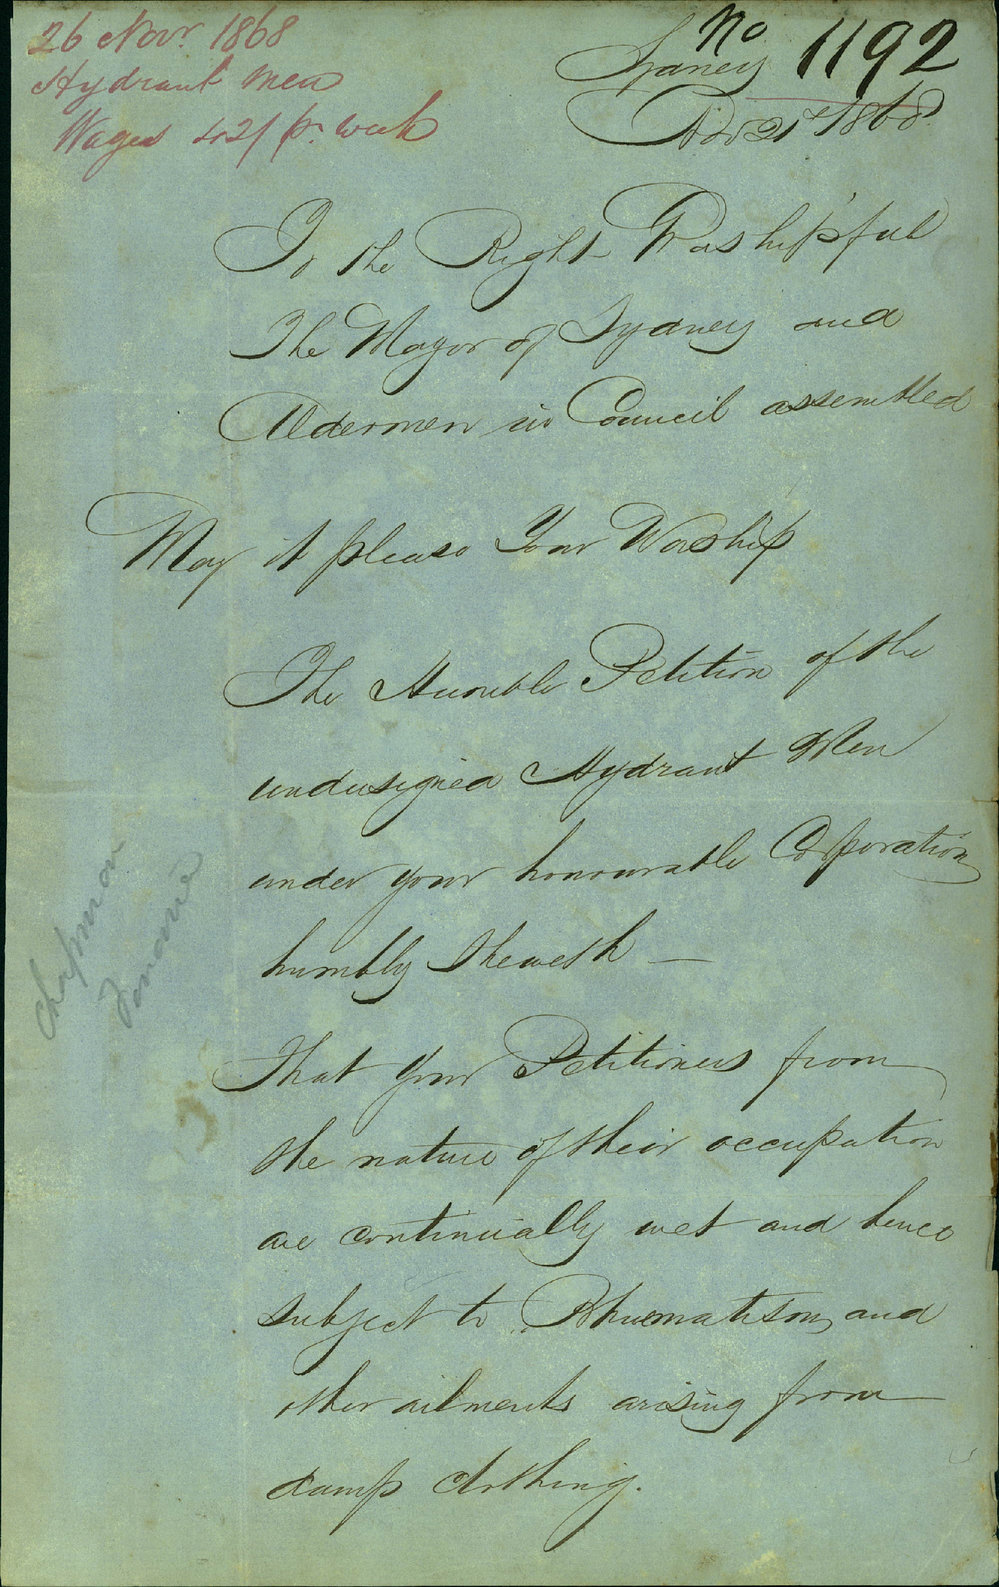 26 Novr. 1868
Hydrant Men
Wages 42/ pr. week
No 1192
Sydney
Nov 21st 1868
To the Right Worshipful
The Mayor of Sydney and
Aldermen in Council assembled
May it please Your Worship
The Humble Petition of the
undersigned Hydrant Men
under your honourable Corporation
humbly Sheweth —
That your Petitioners from
the nature of their occupation
are continually wet and hence
subject to Rhuematism, and
other ailments arising from
damp clothing.
Chapman